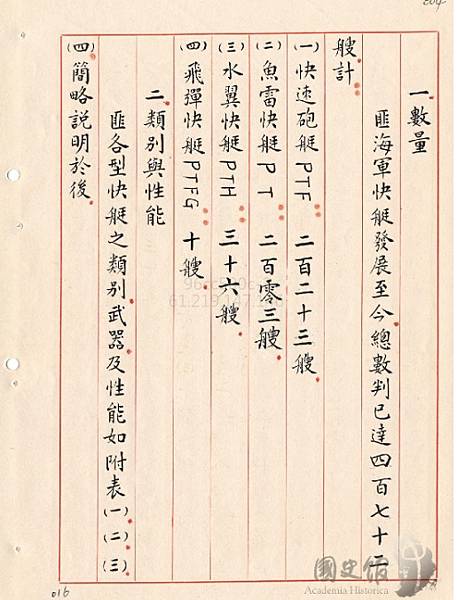 一、數量
匪海軍快艇發展至今總數判已達四百七十二
艘計：
(一)快速砲艇PTF：二百二十三艘。
(二)魚雷快艇PT：二百零三艘。
(三)水翼快艇PTH：三十六艘。
(四)飛彈快艇PTFG：十艘。
二、類別與性能
匪各型快艇之類別、武器及性能如附表(一)(二)(三)
(四)簡略說明於後。
016
國史館
Academia Historica